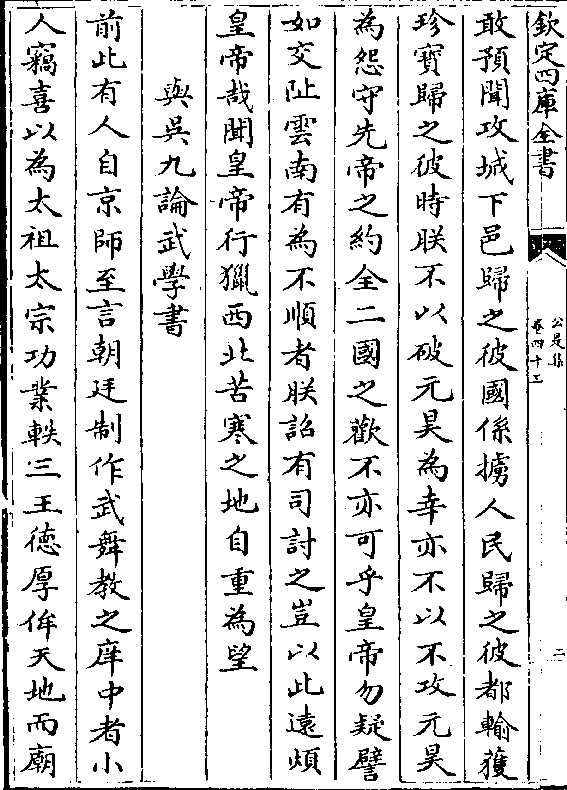 欽定四庫全書
公是集
卷四十三
二
敢預聞攻城下邑歸之彼國係擄人民歸之彼都輸獲
珍寶歸之彼時朕不以破元昊為幸亦不以不攻元昊
為怨守先帝之約全二國之歡不亦可乎皇帝勿疑譬
如交阯雲南有為不順者朕詔有司討之豈以此遠煩
皇帝哉聞皇帝行獵西北苦寒之地自重為望
與吳九論武學書
前此有人自京師至言朝廷制作武舞教之庠中者小
人竊喜以為太祖太宗功業軼三王徳厚侔天地而廟